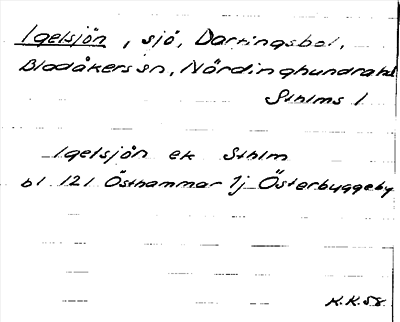 Igelsjön, sjö, Darringsbol,
Bladåkers sn, Närdinghundra hd
Sthlms l
Igelsjön ek Sthlm
bl 121 Östhammar 1j Österbyggeby
K.K.58